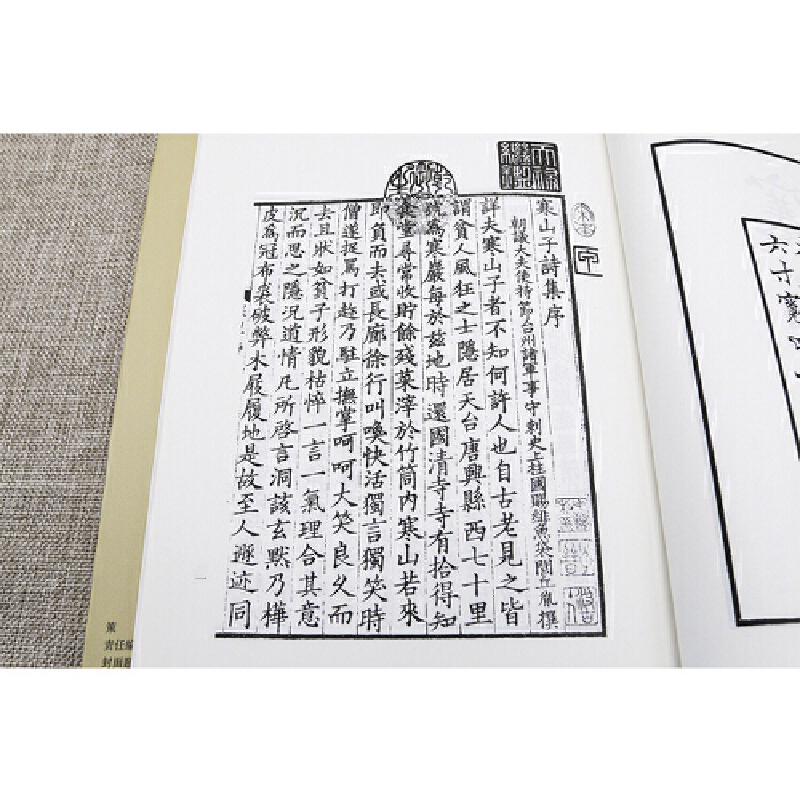 天祿繼鑑
宋本
甲
寒山子詩集序
朝議大夫使持節台州諸軍事守刺史上柱國賜緋魚袋閭丘胤撰
詳夫寒山子者不知何許人也自古老見之皆
謂貧人風狂之士隱居天台唐興縣西七十里
號爲寒巖每於茲地時還國清寺寺有拾得知
食堂尋常收貯餘殘菜滓於竹筒內寒山若來
即負而去或長廊徐行叫喚快活獨言獨笑時
僧遂捉罵打趁乃駐立撫掌呵呵大笑良久而
去且狀如貧子形貌枯悴一言一氣理合其意
沉而思之隱況道情凡所啓言洞該玄默乃樺
皮爲冠布裘破弊木屐履地是故至人遯迹同
一
六寸寬
策
責任編